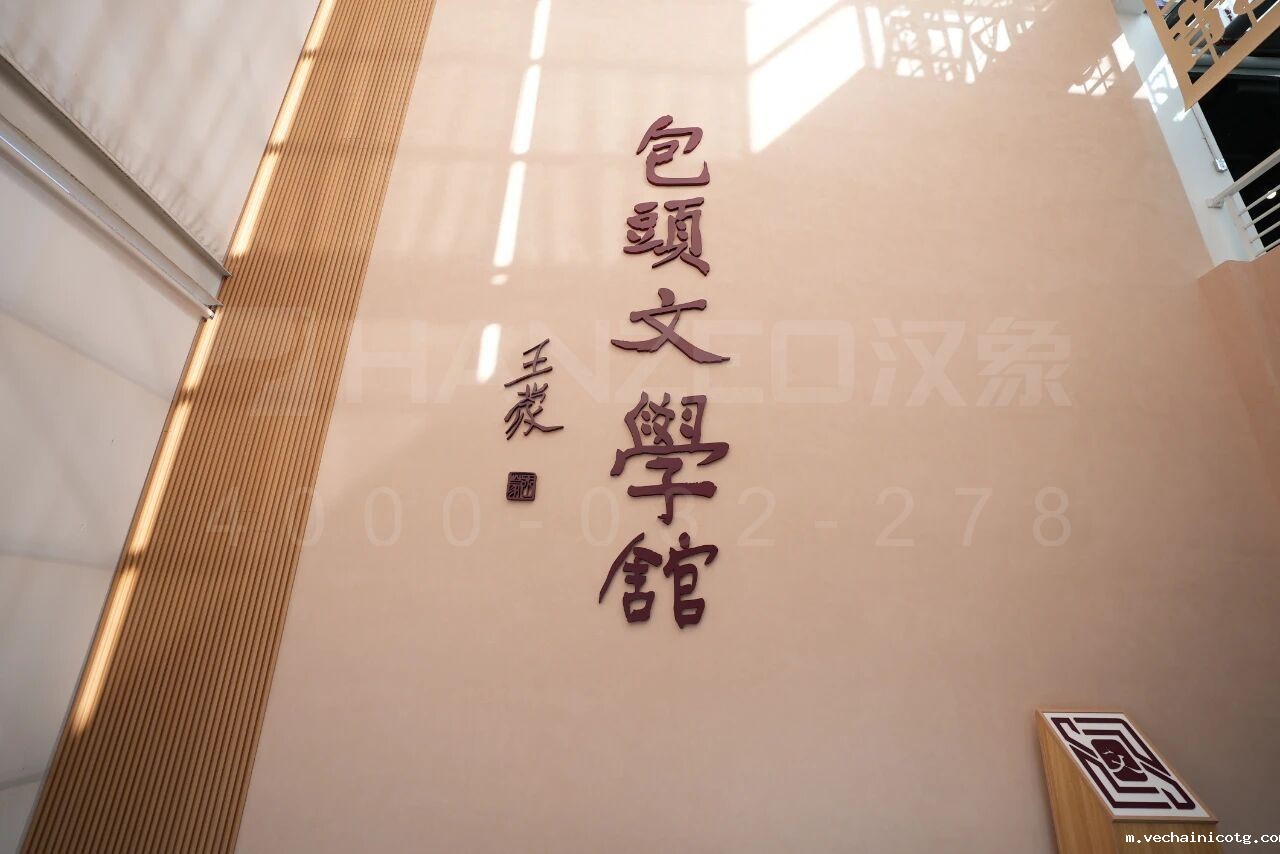 包頭文學館
王蒙
HANZEO汉象
4000-032-278
文
m.vechainicotg.co